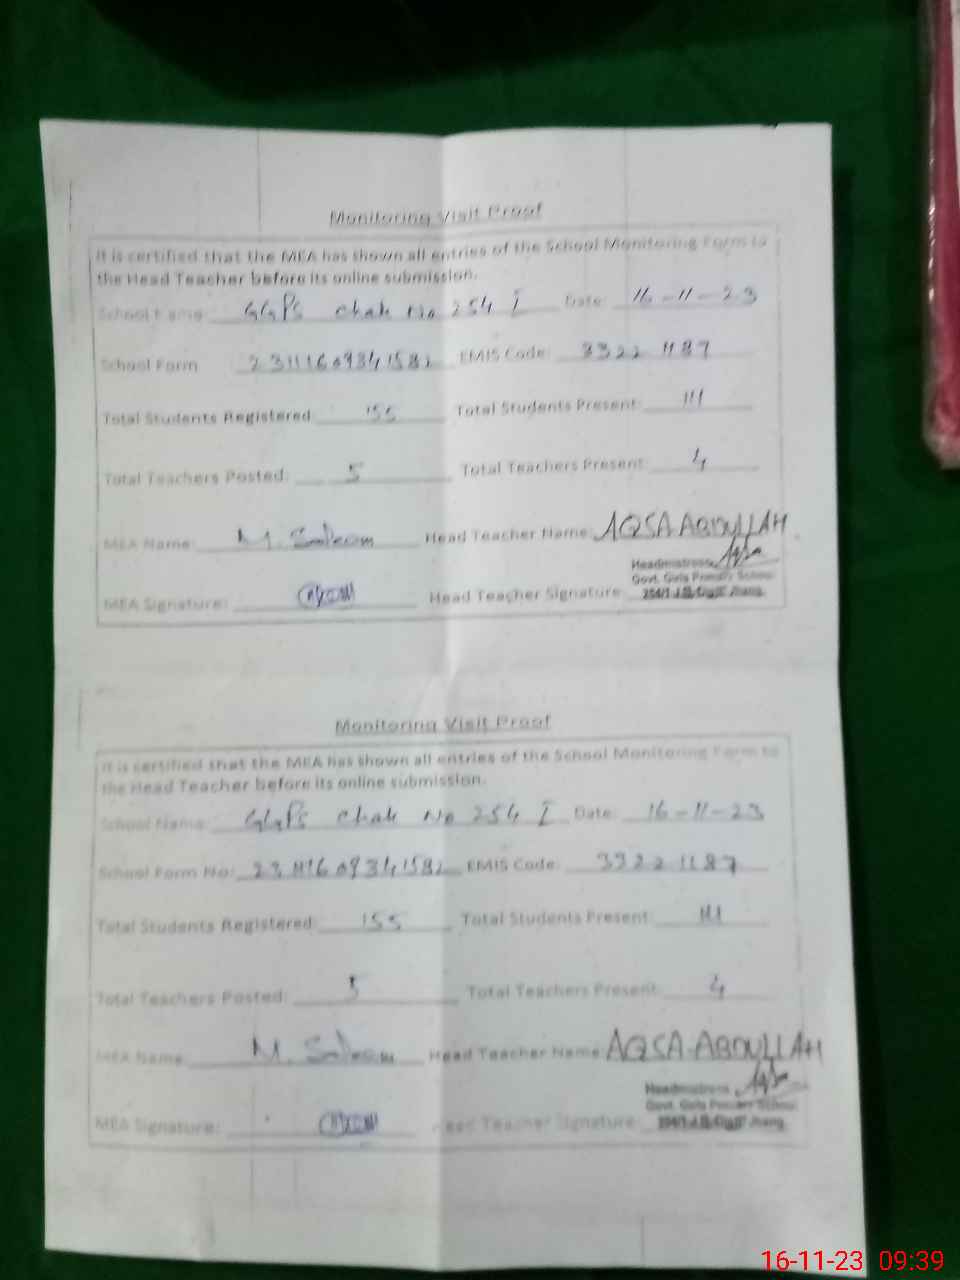 Monitoring Visit Proof
It is certified that the MEA has shown all entries of the School Monitoring Form to
the Head Teacher before its online submission.
School Name: GGPS Chak No 254 I Date: 16-11-23
School Form 23111609341582 EMIS Code: 33221187
Total Students Registered: 155 Total Students Present: 111
Total Teachers Posted: 5 Total Teachers Present: 4
MEA Name: M. Saleem Head Teacher Name: AQSA ABDULLAH
Headmistress
Govt. Girls Primary School
MEA Signature: Head Teacher Signature: Jhang.
Monitoring Visit Proof
It is certified that the MEA has shown all entries of the School Monitoring Form to
the Head Teacher before its online submission.
School Name: GGPS Chak No 254 I Date: 16-11-23
School Form No: 23111609341582 EMIS Code: 33221187
Total Students Registered: 155 Total Students Present: 111
Total Teachers Posted: 5 Total Teachers Present: 4
MEA Name: M. Saleem Head Teacher Name: AQSA ABDULLAH
Headmistress
Govt. Girls Primary School
MEA Signature: Head Teacher Signature: Jhang.
16-11-23 09:39